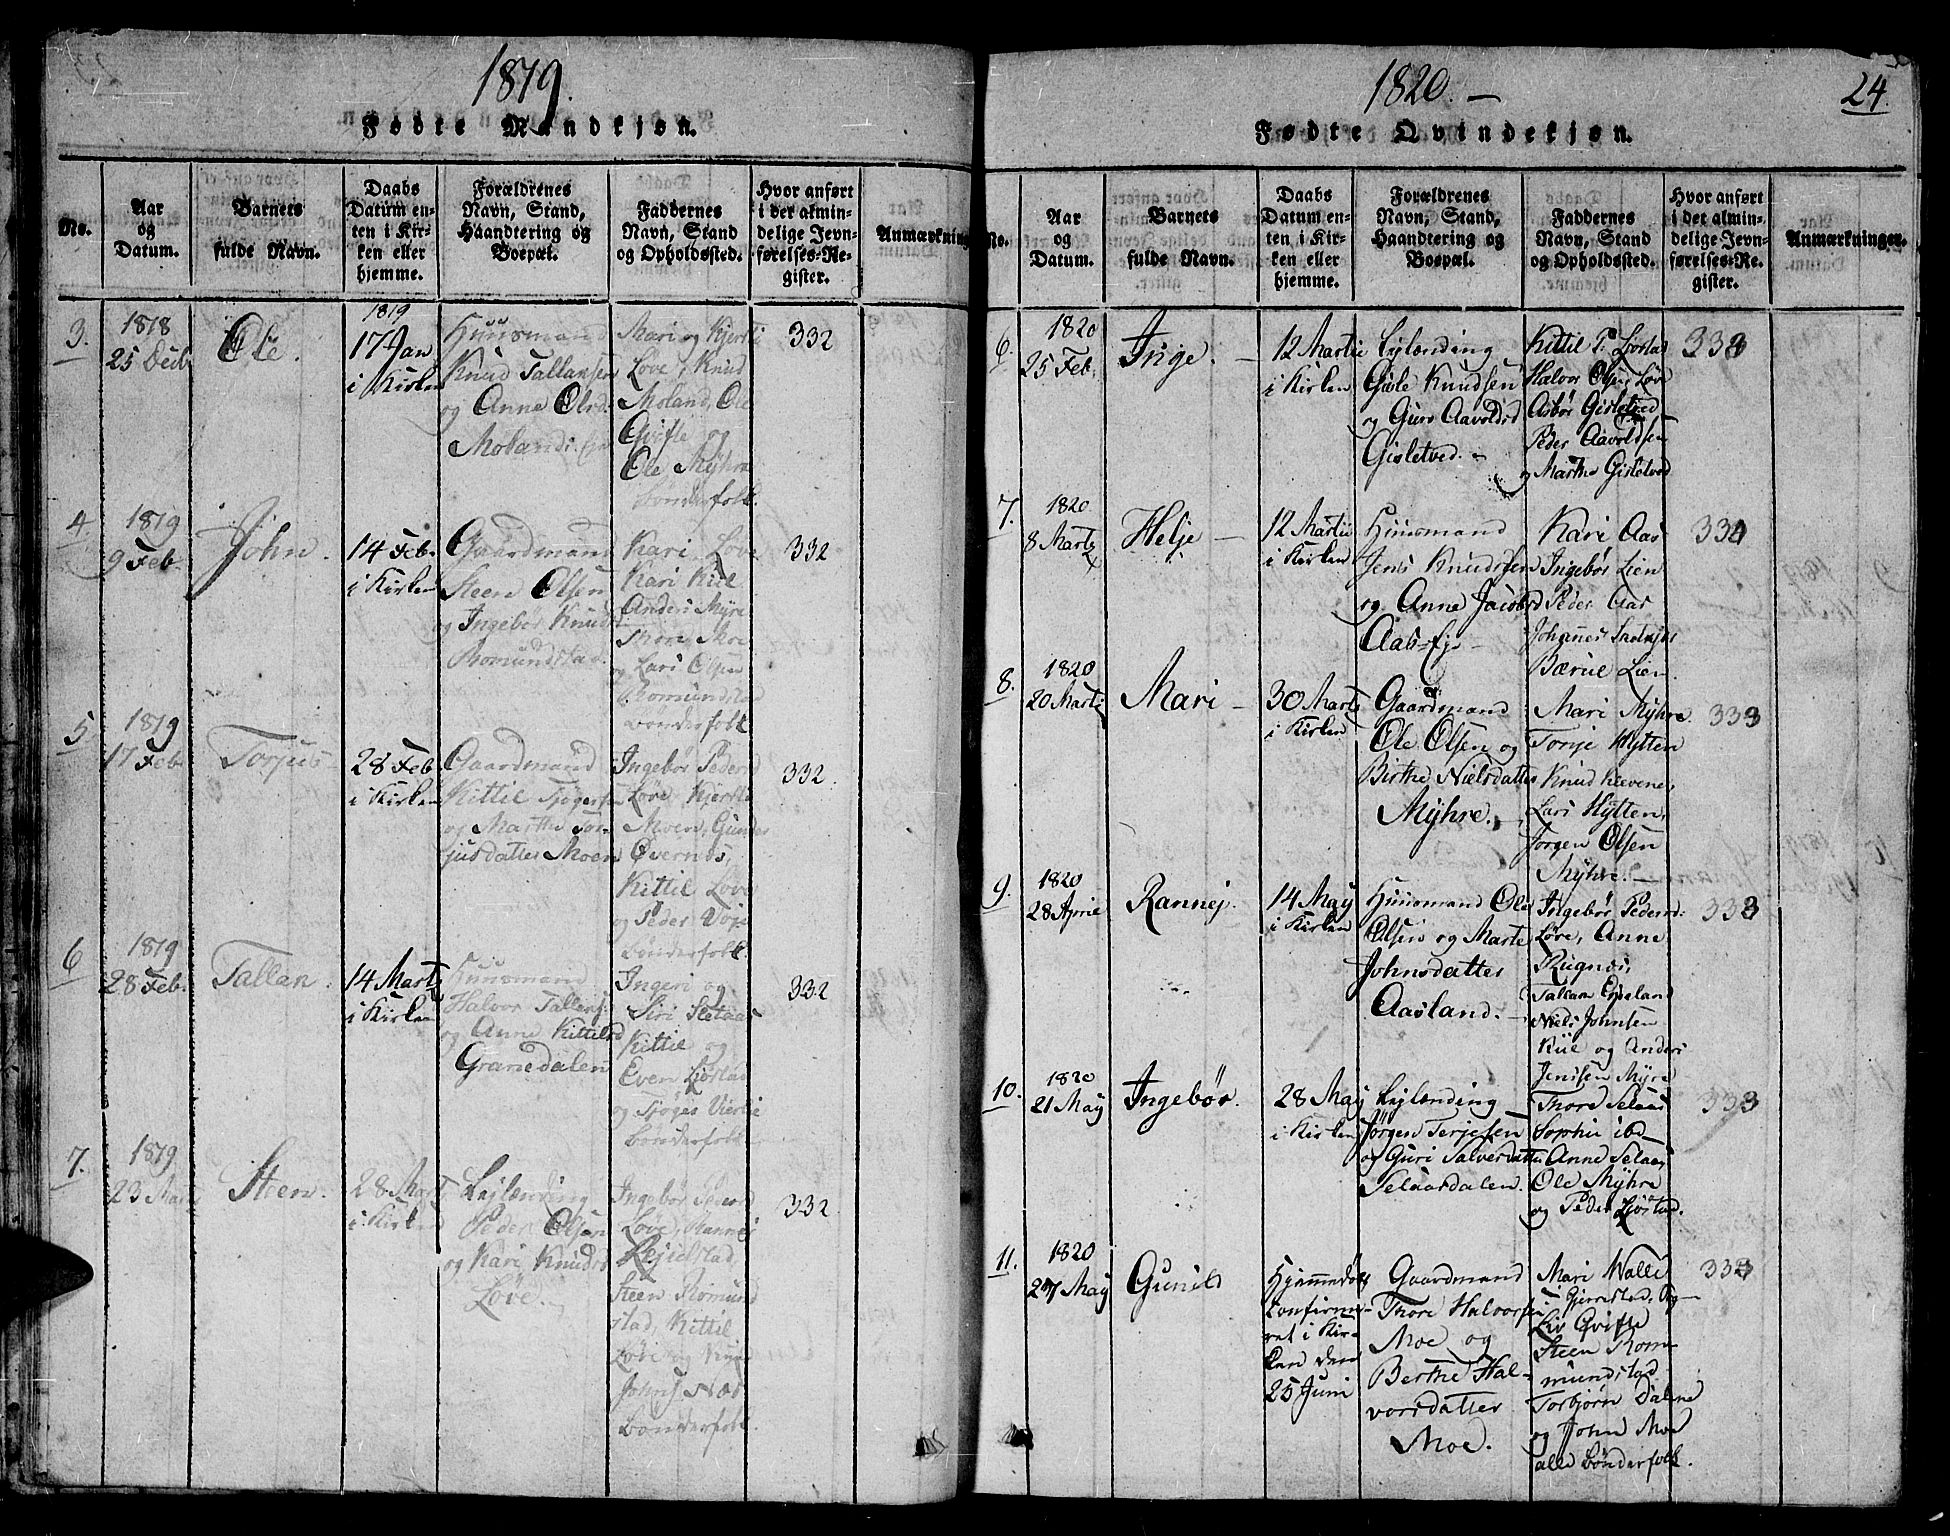 1819.
Fødte Mandkjøn.
No.
Aar
og
Datum.
Barnets
fulde Navn.
Daabs
Datum en-
ten i Kir-
ken eller
hjemme.
Forældrenes
Navn, Stand,
Haandtering og
Boepæl.
Faddernes
Navn, Stand
og Opholdssted.
Hvor anført
i det almin-
delige Jevn-
førelses-Re-
gister.
Anmærkning
3.
1818
25 Decb
Ole.
1819
17 Jan
i Kirken
Huusmand
Knud Tallansen
og Anne Olsd.
Molands
Mari og Kjersti
Løve, Knud
Moland, Ole
Qvifte og
Ole Myhre
Bønderfolk.
332
4
1819
9 Feb.
John.
14 Feb.
i Kirken
Gaardmand
Steen Olsen
og Ingebør Knudsd
Romundstad.
Kari Løve
Kari Kiil
Anders Myre
Thore Moe
og Lars Olsen
Romundstad
Bønderfolk
332
5
1819
17 Feb
Torjus
28 Feb
i Kirken
Gaardmand
Kittil Tjøgersen
og Marthe Tor-
jusdatter Moen
Ingebør Pedersd
Løve Kjersti
Moen, Gunder
Øvernæs,
Kittil Løve
og Peder Voje
Bønderfolk.
332.
6
1819
28 Feb.
Tallak.
14 Marts
i Kirken
Huusmand
Halvor Tallaks.
og Anne Kittilsd
Granedalen
Ingeri og
Siri Sletaas
Kittil og
Even Ljøstad
og Tjøger Vierli
Bønderfolk
332
7.
1819
23 Marts
Steen.
28 Mart
i Kirken
Lejlænding
Peder Olsen
og Kari Knudsd
Løve.
Ingebør Pedersd
Løve, Rannei
Lejelstad,
Steen Romund
stad, Kittil
Løve og Knud
Johns Næs
Bønderfolk.
332
1820. —
24.
Fødte Qvindekjøn.
No.
Aar
og
Datum.
Barnets
fulde Navn.
Daabs
Datum en-
ten i Kir-
ken eller
hjemme.
Forældrenes
Navn, Stand,
Haandtering og
Boepæl.
Faddernes
Navn, Stand
og Opholdssted.
Hvor anført
i det almin-
delige Jevn-
førelses-Re-
gister.
Anmærkninger.
6.
1820
25 Feb.
Inge. —
12 Martii
i Kirken
Lejlænding
Gisle Knudsen
og Guro Aavoldsd
Gisletved. —
Kittil P. Ljøstad
Halvor Olsen Løve
Asbør Gisletved
Peder Aavoldsen
og Marthe Gisletved
333
7.
1820
8 Marts
Helje —
12 Martii
i Kirken
Huusmand
Jens Knudsen
og Anne Jacobsd
Aas-eje —
Kari Aas
Ingebør Lien
Peder Aas
Johannes
Bærue Lien.
334
8.
1820
20 Marti
Mari —
30 Marts
i Kirken
Gaardmand
Ole Olsen og
Birthe Nielsdatter
Myhre.
Mari Myhre
Tonje Hytten
Knud Kleven,
Lars Hytten,
Jørgen Olsen
Myhre. —
333
9.
1820
28 April
Rannej.
14 May
i Kirken
Huusmand Ole
Olsen og Marte
Johnsdatter
Aasland. —
Ingebør Pedersd:
Løve, Anne
Rugnæs,
Tallak Espeland
Niels Johnsen
Kiil og Anders
Jensen Myre
333
10.
1820
21 May
Ingebør.
28 May
i Kirken
Lejlænding —
Jørgen Terjesen
og Guri Salvesdatter
Selaasdalen.
Thore Selaas
Sophie ibd —
Anne Selaas
Ole Myhre
og Peder Ljøstad.
333
11.
1820
27 May
Gunild
Hjemmedøbt
Confirme-
ret i Kir-
ken den
25 Juni
Gaardmand
Thore Halvorsen
Moe og
Berthe Hal-
vorsdatter
Moe.
Mari Walle
Gjerrestad,
Liv Qvifte
Steen Rom-
mundstad
Torbjørn Dalene
og John Moe
alle Bønderfolk.
333